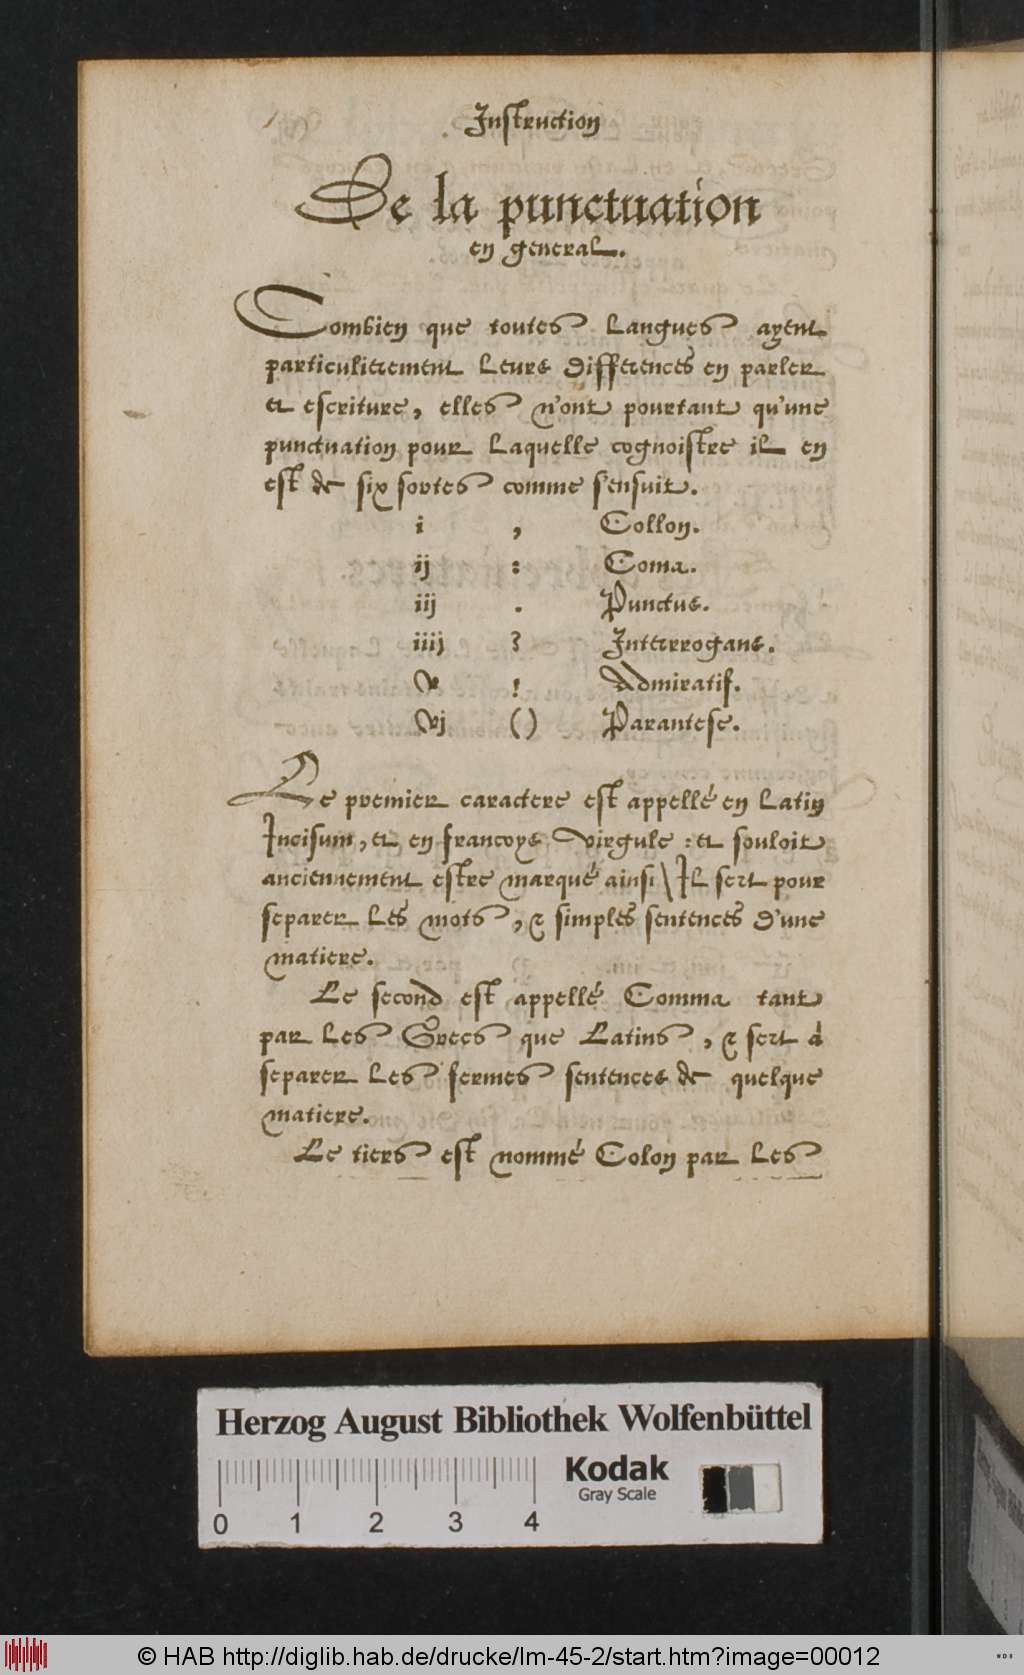 Instruction
De la punctuation
en general.
Combien que toutes Langues ayent
particulierement Leurs differences en parler
et escriture, elles n'ont pourtant qu'une
punctuation pour Laquelle cognoistre iL en
est de six sortes comme s'ensuit.
i , Collon.
ij : Coma.
iij . Punctus.
iiij ? Interrogans.
v ! Admiratif.
vj () Parantese.
Le premier caractere est appellé en Latin
Incisum, et en francoys Virgule : et souloit
anciennement estre marqué ainsi \ IL sert pour
separer Les mots, & simples sentences d'une
matiere.
Le second est appellé Comma tant
par Les Grecs que Latins, & sert à
separer Les fermes sentences de quelque
matiere.
Le tiers est nommé Colon par Les
Herzog August Bibliothek Wolfenbüttel
Kodak
Gray Scale
0 1 2 3 4
© HAB http://diglib.hab.de/drucke/lm-45-2/start.htm?image=00012